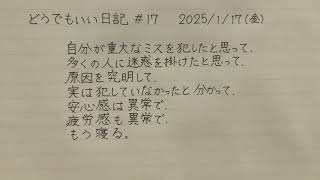 どうでもいい日記 #17 2025/1/17(金)
自分が重大なミスを犯したと思って.
多くの人に迷惑を掛けたと思って.
原因を究明して.
実は犯していなかったと分かって.
安心感は異常で.
疲労感も異常で.
もう寝る。